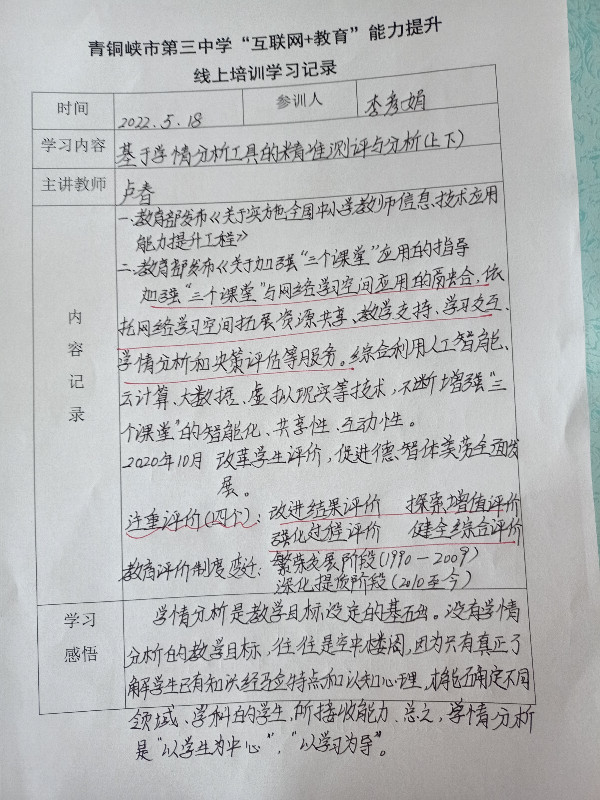 青铜峡市第三中学“互联网+教育”能力提升
线上培训学习记录
时间 2022.5.18 参训人 李彦娟
学习内容 基于学情分析工具的精准测评与分析(上下)
主讲教师 卢春
一、教育部发布《关于实施全国中小学教师信息技术应用
能力提升工程》
二、教育部发布《关于加强“三个课堂”应用的指导
加强“三个课堂”与网络学习空间应用的融合，依
托网络学习空间拓展资源共享、教学支持、学习交互、
内容记录 学情分析和决策评估等服务。综合利用人工智能、
云计算、大数据、虚拟现实等技术，不断增强“三
个课堂”的智能化、共享性、互动性。
2020年10月 改革学生评价，促进德智体美劳全面发
展。
注重评价(四个)：改进结果评价 探索增值评价
强化过程评价 健全综合评价
教育评价制度变迁：繁荣发展阶段(1990－2009)
深化提质阶段(2010至今)
学习感悟 学情分析是教学目标设定的基础。没有学情
分析的教学目标，往往是空中楼阁，因为只有真正了
解学生已有知识经验特点和认知心理，才能确定不同
领域、学科的学生，所接收能力、总之，学情分析
是“以学生为中心”，“以学习为导”。